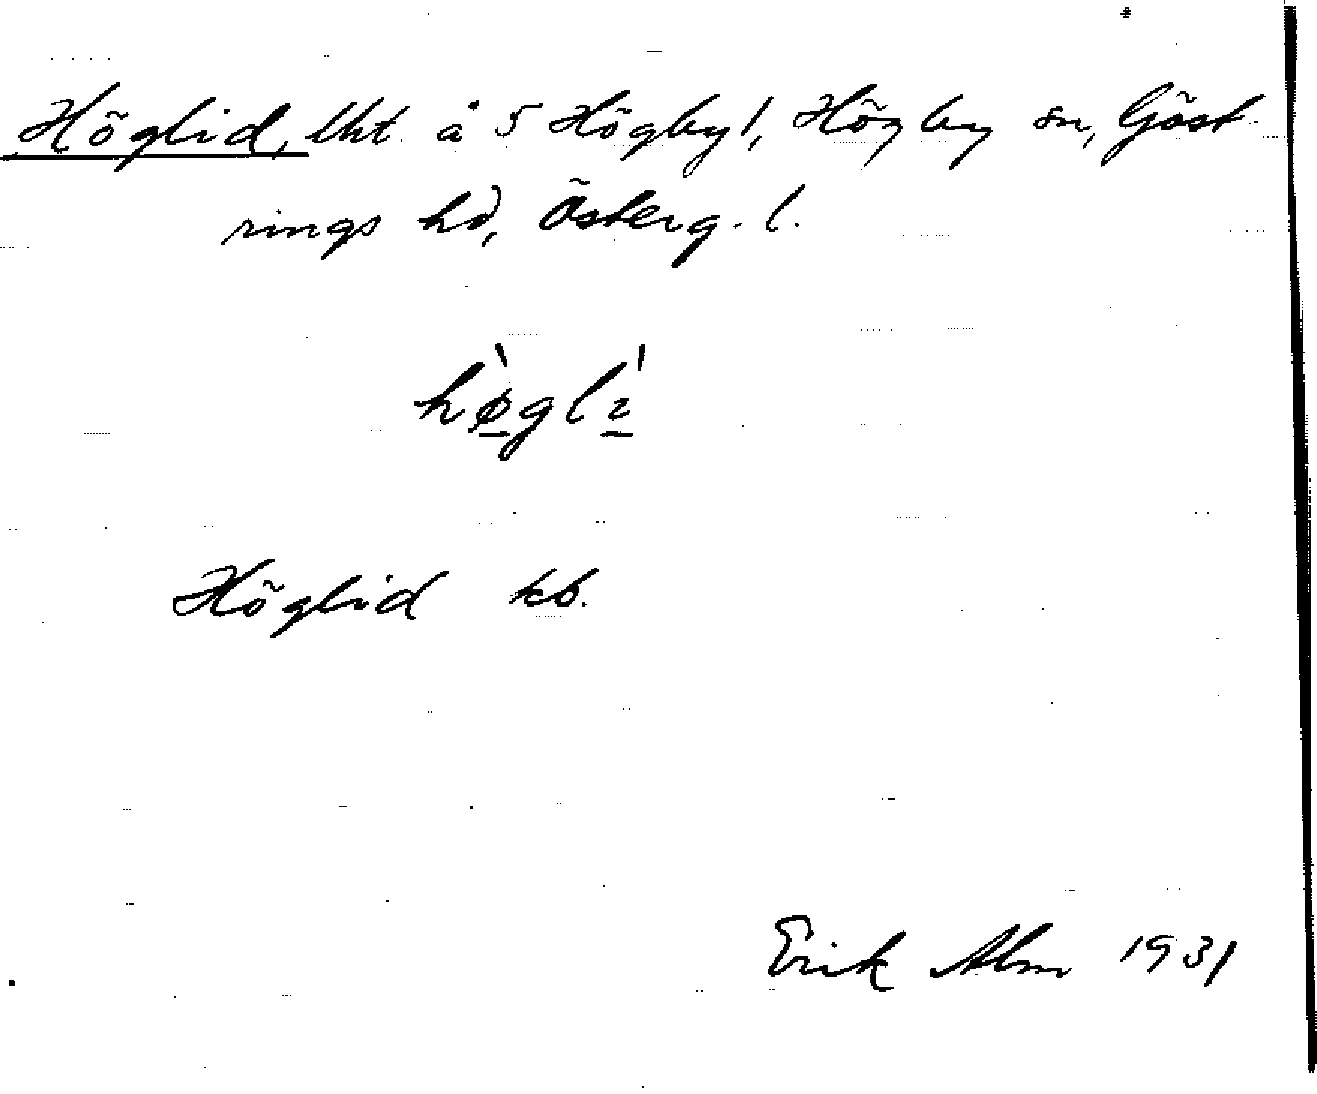 Höglid, lht. å 5 Högby l, Högby sn, Göst-
rings hd, Österg. l.
hø̀glí
Höglid kb.
Erik Alm 1931